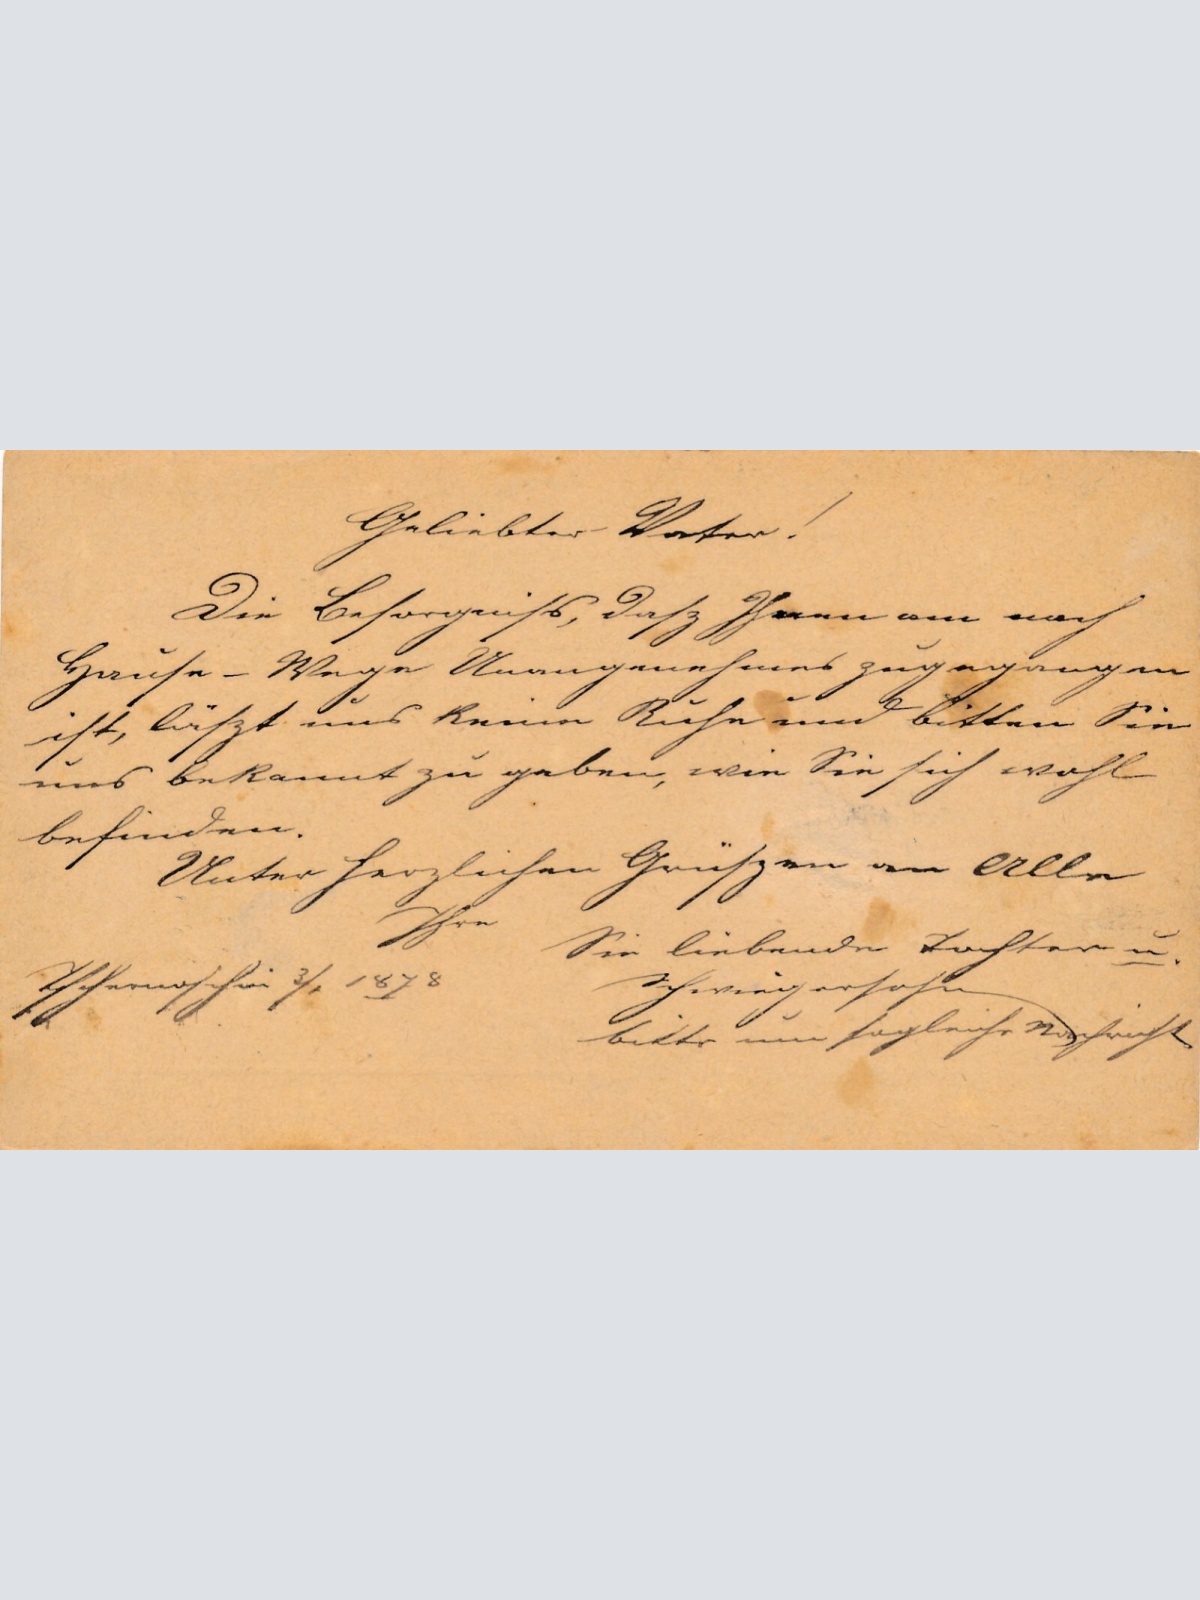 Geliebter Vater!
Die Besorgniß, daß Ihnen am nach
Hause-Wege Unangenehmes zugegangen
ist, läßt uns keine Ruhe und bitten Sie
uns bekannt zu geben, wie Sie sich wohl
befinden.
Unter herzlichen Grüßen an Alle
Ihre
Sie liebende Tochter u.
Schwiegersohn
3/1 1878
bitte um sogleiche Nachricht